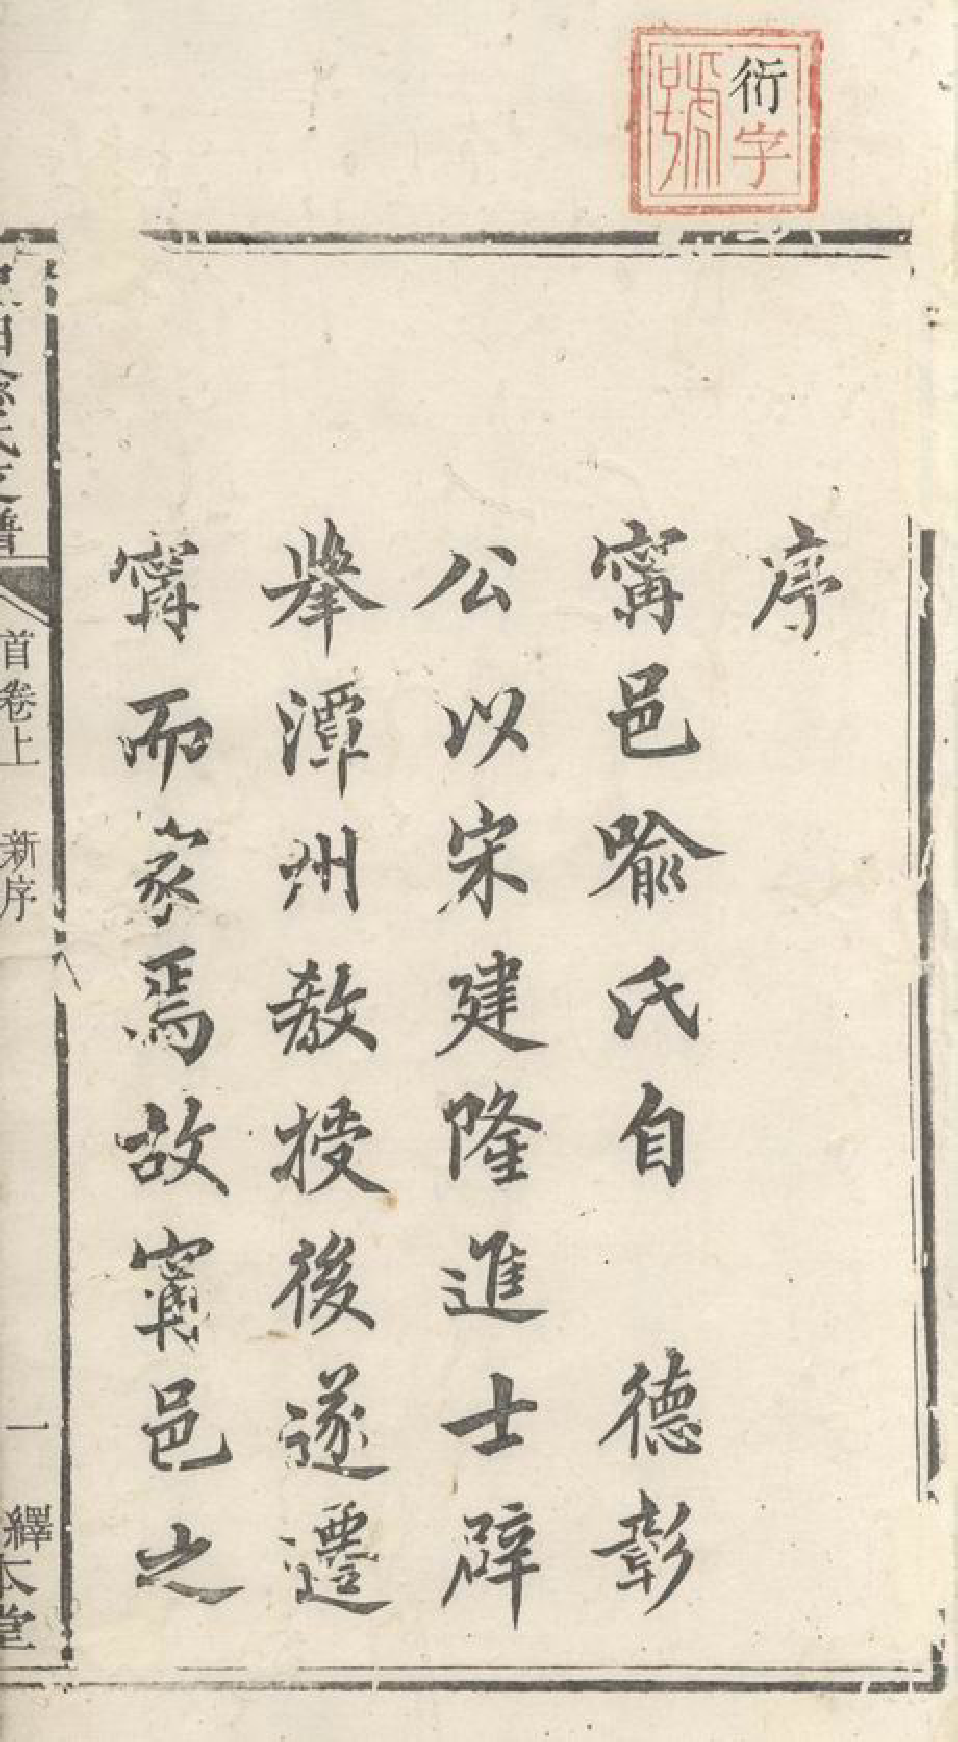 衍字號
序
寗邑喻氏自 德彰
公以宋建隆進士辟
舉潭州教授後遂遷
寗而家焉故寗邑之
氏支譜
首卷上 新序
一
繹本堂